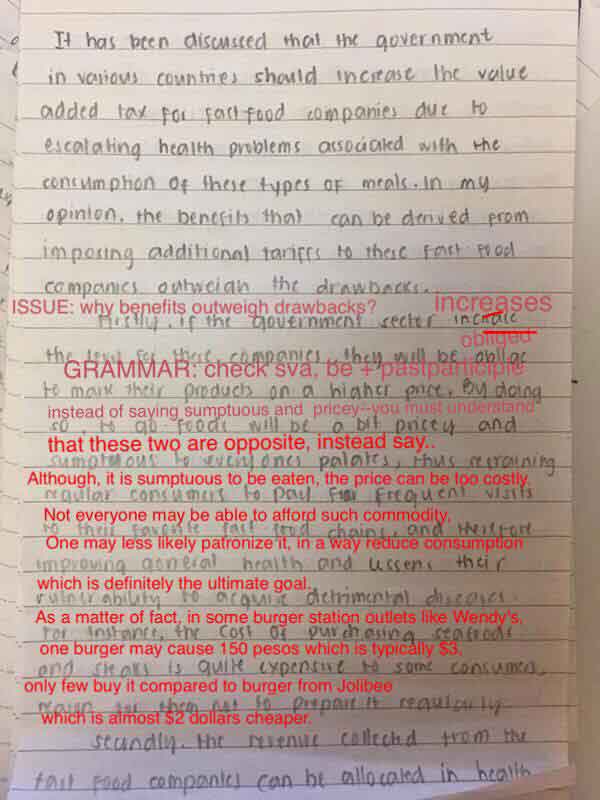 It has been discussed that the government
in various countries should increase the value
added tax for fastfood companies due to
escalating health problems associated with the
consumption of these types of meals. In my
opinion, the benefits that can be derived from
imposing additional tariffs to these fast food
companies outweigh the drawbacks.
ISSUE: why benefits outweigh drawbacks? increases
Firstly, if the government sector increase
obliged
the for these companies, they will be
GRAMMAR: check sva, be + pastparticiple
to mark their products on a higher price. By doing
instead of saying sumptuous and pricey--you must understand
so, to go foods will be a bit pricey and
that these two are opposite, instead say..
sumptuous to everyones palates, thus restraining
Although, it is sumptuous to be eaten, the price can be too costly,
regular consumers to for frequent visits
Not everyone may be able to afford such commodity,
to their favorite fast food chains, and therefore
One may less likely patronize it, in a way reduce consumption
improving general health and lessens their
which is definitely the ultimate goal.
vulnerability to acquire detrimental diseases.
As a matter of fact, in some burger station outlets like Wendy's,
For instance, the cost of purchasing seafoods
one burger may cause 150 pesos which is typically $3,
and steaks is quite expensive to some consumers,
only few buy it compared to burger from Jolibee
reason for them not to prepare it regularly.
which is almost $2 dollars cheaper.
Secondly, the revenue collected from the
fast food companies can be allocated in health